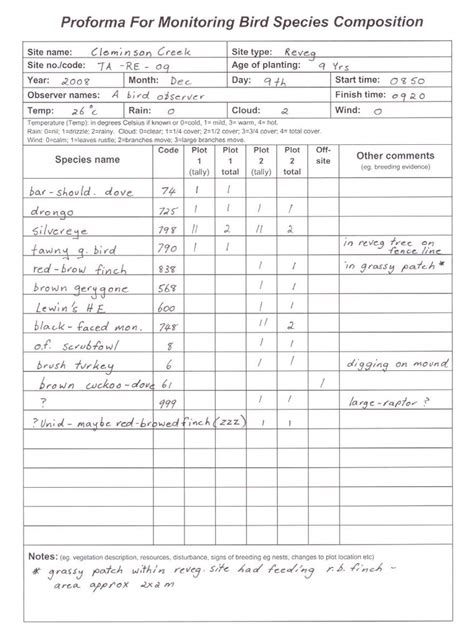 Proforma For Monitoring Bird Species Composition
Site name: Cleminson Creek Site type: Reveg
Site no./code: TA-RE-09 Age of planting: 9 Yrs
Year: 2008 Month: Dec Day: 9th Start time: 0850
Observer names: A bird observer Finish time: 0920
Temp: 26°c Rain: 0 Cloud: 2 Wind: 0
Temperature (Temp): in degrees Celsius if known or 0=cold, 1= mild, 3= warm, 4= hot.
Rain: 0=nil; 1=drizzle; 2=rainy. Cloud: 0=clear; 1=1/4 cover; 2=1/2 cover; 3=3/4 cover; 4= total cover.
Wind: 0=calm; 1=leaves rustle; 2=branches move; 3=large branches move.
Species name Code Plot 1 (tally) Plot 1 total Plot 2 (tally) Plot 2 total Off-site Other comments (eg. breeding evidence)
bar-should. dove 74 1 1
drongo 725 1 1 1 1
silvereye 798 11 2 11 2
tawny g. bird 790 1 1 in reveg tree on fence line
red-brow finch 838 1 1 in grassy patch*
brown gerygone 568 1 1
Lewin's HE 600 1 1
black-faced mon. 748 11 2
o.f. scrubfowl 8 1 1
brush turkey 6 1 1 digging on mound
brown cuckoo-dove 61 1
? 999 1 1 large-raptor ?
? Unid - maybe red-browed finch (zzz) 1 1
Notes: (eg. vegetation description, resources, disturbance, signs of breeding eg nests, changes to plot location etc)
* grassy patch within reveg. site had feeding r.b. finch -
area approx 2x2m